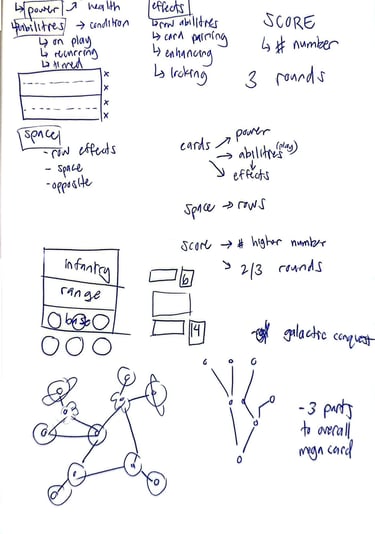 ↳ power → health
↳ abilitires → condition
↳ on play
↳ recurring
↳ timed
x
x
x
x
effects
↳ row abilitres
↳ card pairing
↳ enhancing
↳ locking
SCORE
↳ # number
3 rounds
space
- row effects
- space
- opposite
cards → power
→ abilitres (play)
→ effects
space → rows
score → # higher number
↳ 2/3 rounds
infantry
range
base
6
14
- galactic conquest
- 3 parts
to overall
mega card